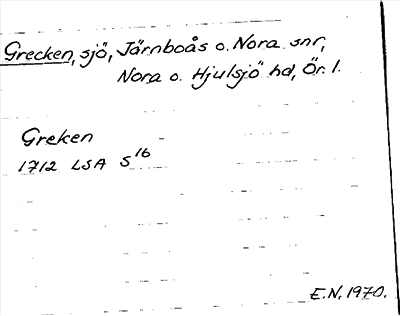 Grecken, sjö, Järnboås o. Nora snr,
Nora o. Hjulsjö hd, Ör. l.
Greken
1712 LSA S16
E.N. 1970.